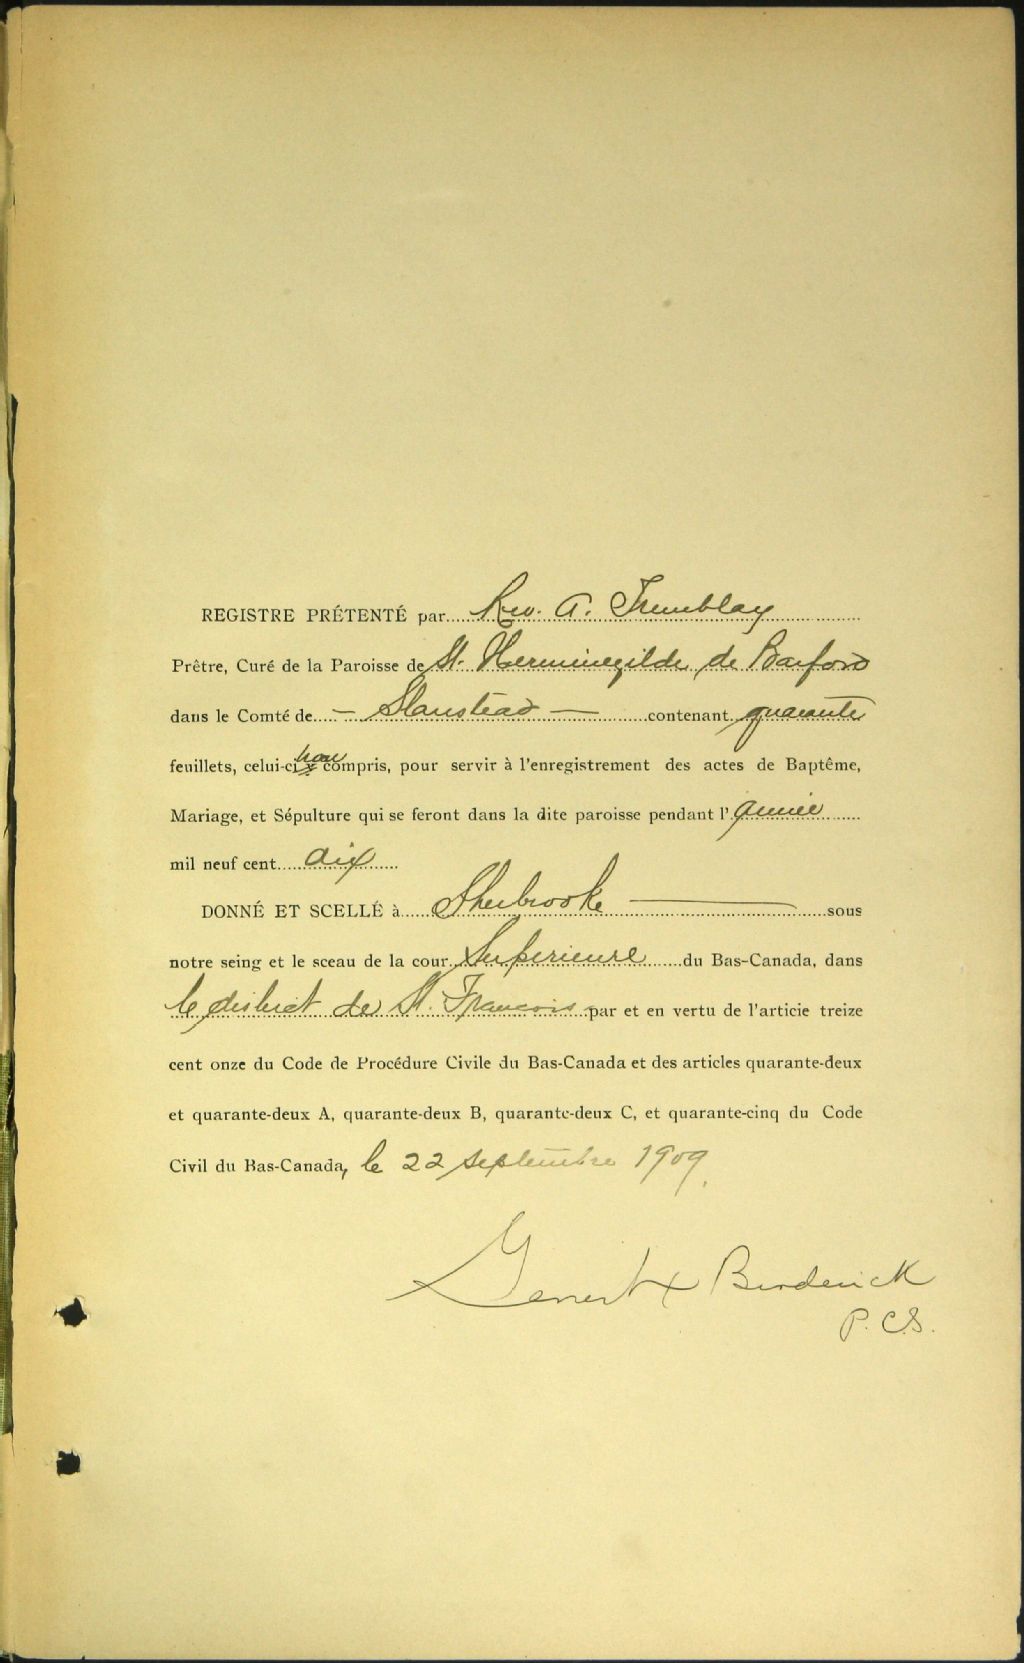 REGISTRE PRÉTENTÉ par Rev. A. Tremblay
Prêtre, Curé de la Paroisse de St. Herminegilde de Barford
dans le Comté de - Stanstead - contenant quarante
feuillets, celui-ci non compris, pour servir à l'enregistrement des actes de Baptême,
Mariage, et Sépulture qui se feront dans la dite paroisse pendant l'année
mil neuf cent dix
DONNÉ ET SCELLÉ à Sherbrooke — sous
notre seing et le sceau de la cour Superieure du Bas-Canada, dans
le district de St. François par et en vertu de l'articie treize
cent onze du Code de Procédure Civile du Bas-Canada et des articles quarante-deux
et quarante-deux A, quarante-deux B, quarante-deux C, et quarante-cinq du Code
Civil du Bas-Canada, le 22 septembre 1909.
P. C.S.